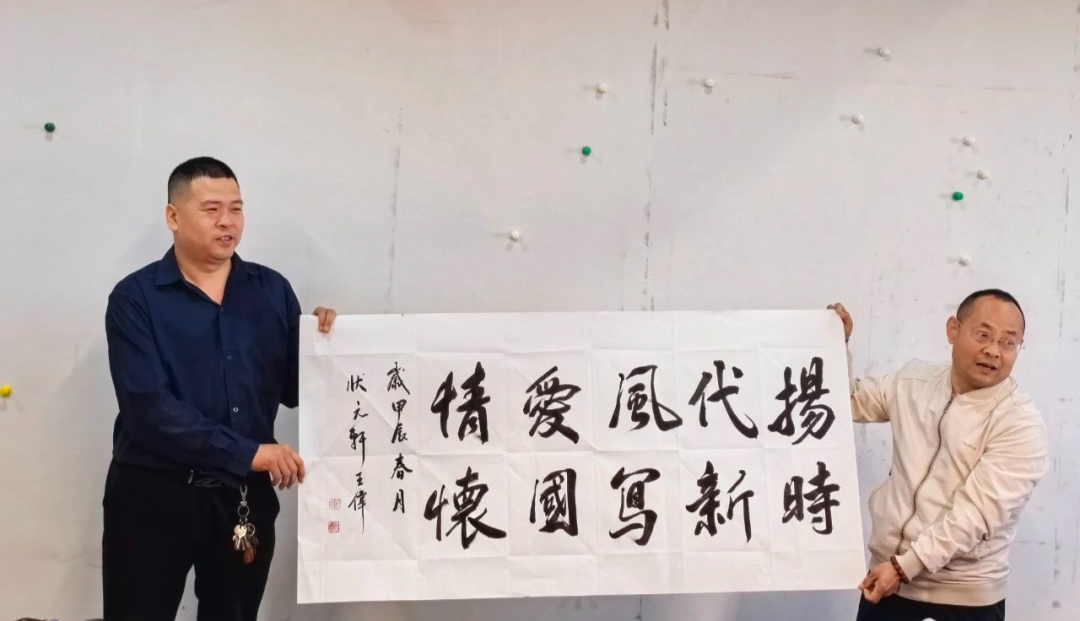 揚時
代新
風寫
愛國
情懷
歲甲辰春月
狀元軒王偉